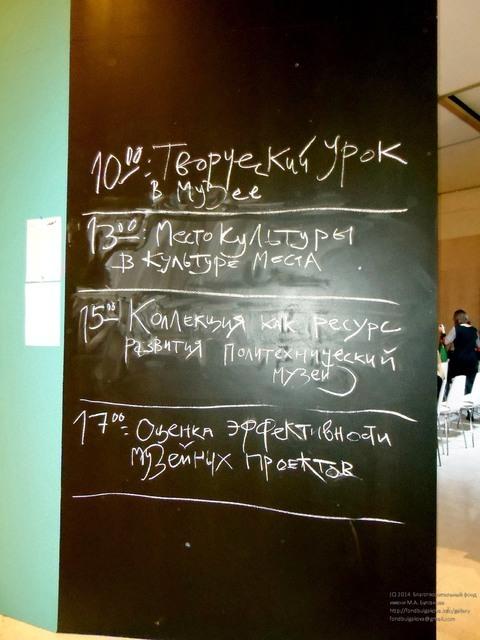 10⁰⁰: Творческий урок
в музее
13⁰⁰: Место культуры
в культуре места
15⁰⁰ Коллекция как ресурс
развития Политехнический
музей
17⁰⁰: Оценка эффективности
музейних проектов
(C) 2014. Благотворительный фонд
имени М.А. Булгакова
http://fondbulgakova.info/gallery
fondbulgakova@gmail.com